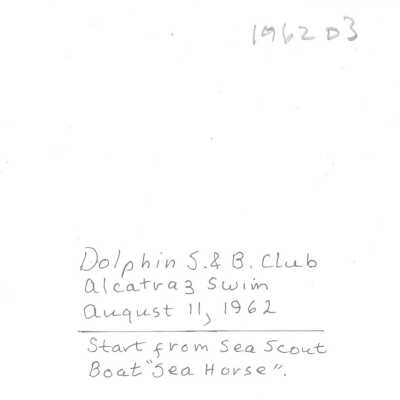 1962 D3
Dolphin S. & B. Club
Alcatraz Swim
August 11, 1962
Start from Sea Scout
Boat "Sea Horse".